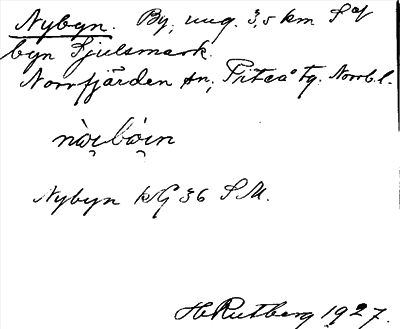 Nybyn. By, ung. 3,5 km S af
byn Sjulsmark.
Norrfjärden sn, Piteå tg. Norrb.l.
Nybyn kG 36 S.M.
H Rutberg 1927.